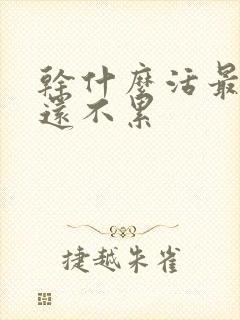 幹什麼活最
還不累
捷越朱雀